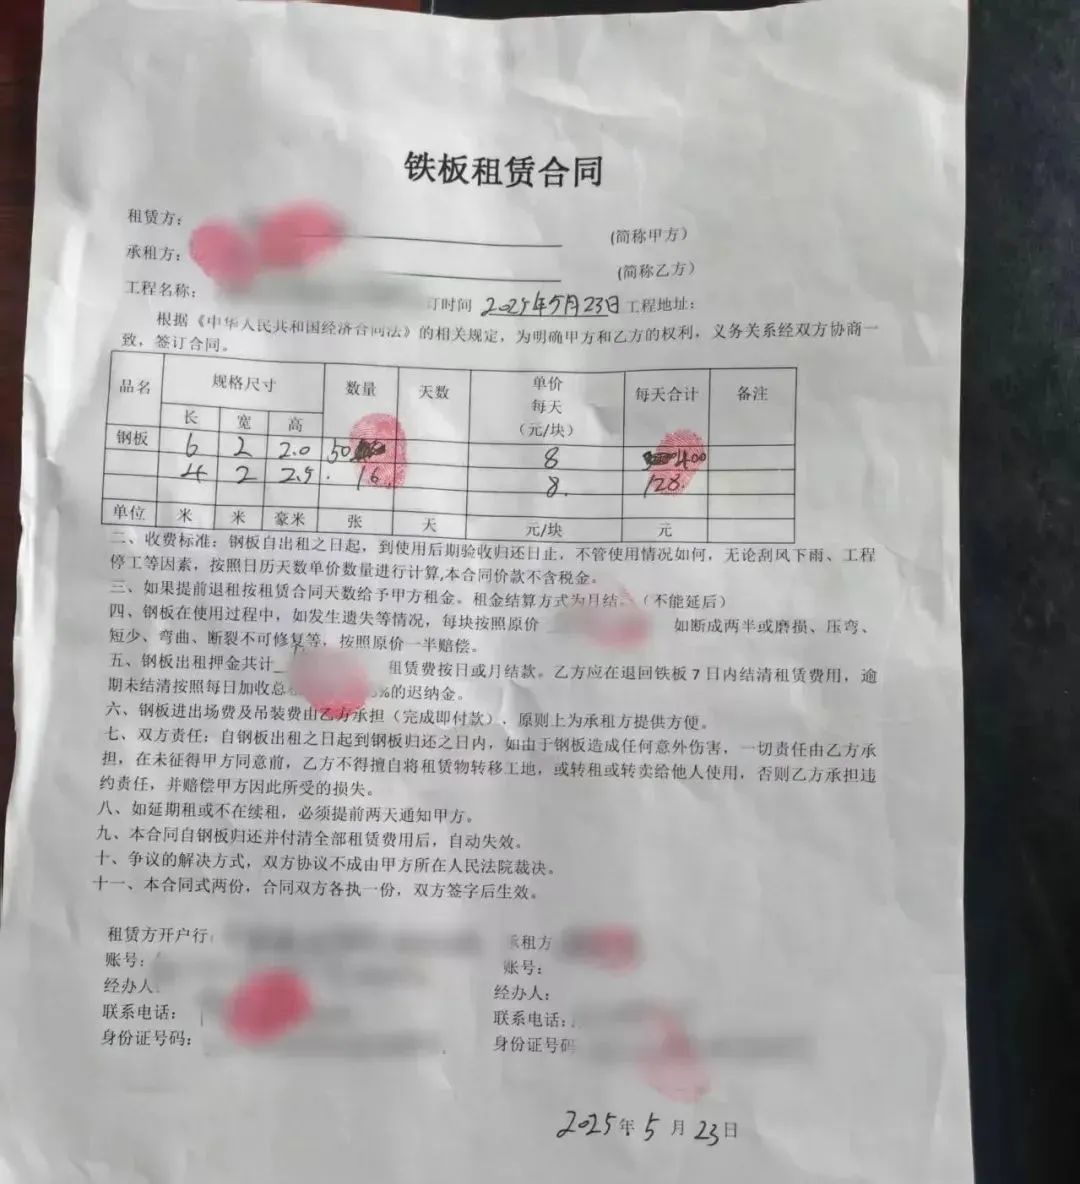 铁板租赁合同
租赁方： (简称甲方)
承租方： (简称乙方)
工程名称： 订时间 2025年5月23日 工程地址：
根据《中华人民共和国经济合同法》的相关规定，为明确甲方和乙方的权利，义务关系经双方协商一
致，签订合同。
品名 规格尺寸 数量 天数 单价 每天合计 备注
每天
（元/块）
长 宽 高
钢板 6 2 2.0 50 8 400
4 2 2.5 16 8. 128.
单位 米 米 豪米 张 天 元/块 元
二、收费标准：钢板自出租之日起，到使用后期验收归还日止，不管使用情况如何，无论刮风下雨、工程
停工等因素，按照日历天数单价数量进行计算,本合同价款不含税金。
三、如果提前退租按租赁合同天数给予甲方租金。租金结算方式为月结。（不能延后）
四、钢板在使用过程中，如发生遗失等情况，每块按照原价 如断成两半或磨损、压弯、
短少、弯曲、断裂不可修复等，按照原价一半赔偿。
五、钢板出租押金共计 租赁费按日或月结款。乙方应在退回铁板 7 日内结清租赁费用，逾
期未结清按照每日加收总 %的迟纳金。
六、钢板进出场费及吊装费由乙方承担（完成即付款），原则上为承租方提供方便。
七、双方责任：自钢板出租之日起到钢板归还之日内，如由于钢板造成任何意外伤害，一切责任由乙方承
担，在未征得甲方同意前，乙方不得擅自将租赁物转移工地，或转租或转卖给他人使用，否则乙方承担违
约责任，并赔偿甲方因此所受的损失。
八、如延期租或不在续租，必须提前两天通知甲方。
九、本合同自钢板归还并付清全部租赁费用后，自动失效。
十、争议的解决方式，双方协议不成由甲方所在人民法院裁决。
十一、本合同式两份，合同双方各执一份，双方签字后生效。
租赁方开户行 承租方
账号： 账号：
经办人 经办人：
联系电话： 联系电话：
身份证号码： 身份证号码
2025年 5 月 23日